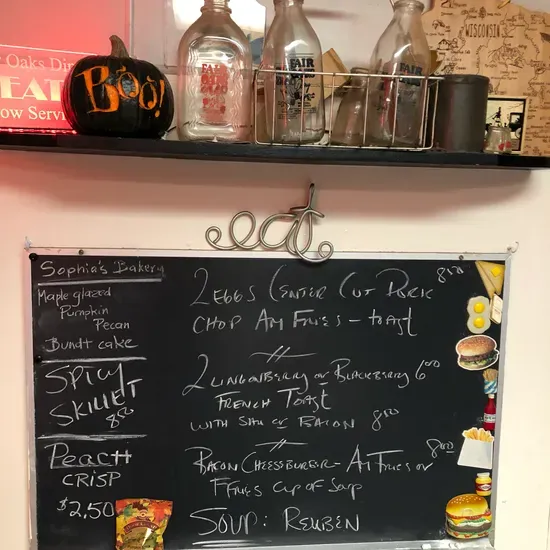 Oaks Di
EAT
ow Servi
Boo!
FAIR
OAKS
FAIR
OAKS
WISCONSIN
eat
Sophia's Bakery
Maple glazed
Pumpkin
Pecan
Bundt cake
SPICY
SKILLET
8.00
PEACH
CRISP
$2.50
2 EGGS CENTER CUT PORK 8.00
CHOP AM FRIES - TOAST
2 LINGONBERRY or BLACKBERRY 6.00
FRENCH TOAST
WITH SAU or BACON 8.00
BACON CHEESEBURGER - AM FRIES or 8.00
F FRIES CUP OF SOUP
SOUP: REUBEN